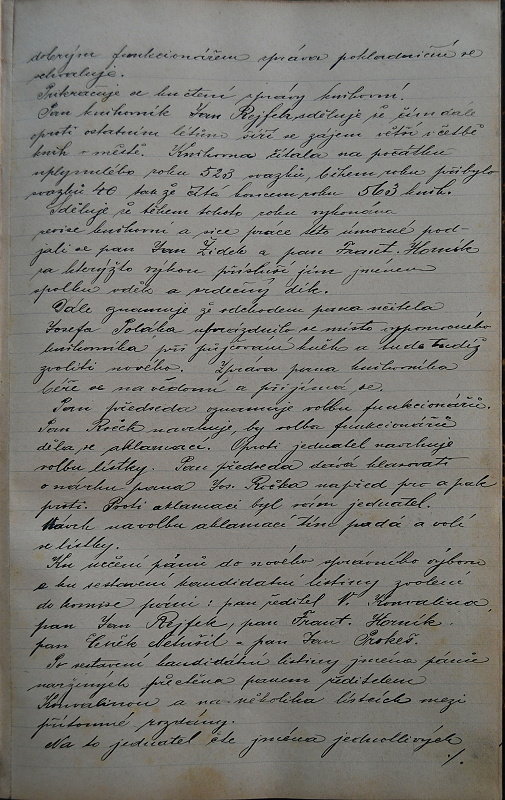 dobrým funkcionářem správa pokladniční se
schvaluje.
Pokračuje se ku čtení zprávy knihovní.
Pan knihovník Jan Rejfek sděluje že čím dále
oproti ostatním létům šíří se zájem větší v četbě
knih v městě. Knihovna čítala na počátku
uplynulého roku 523 svazků, během roku přibylo
svazků 40 takže čítá koncem roku 563 knih.
Sděluje že během tohoto roku vykonána
revise knihovní a sice práce této úmorné pod-
jali se pan Jan Židek a pan Frant. Horník
za kterýžto výkon přísluší jim jménem
spolku vděk a srdečný dík.
Dále oznamuje že odchodem pana učitele
Josefa Poláka uprázdnilo se místo výpomocného
knihovníka při půjčování knih a bude tudíž
zvoliti nového. Zpráva pana knihovníka
béře se na vědomí a přijímá se.
Pan předseda oznamuje volbu funkcionářů.
Pan Roček navrhuje, by volba funkcionářů
děla se aklamací. Oproti jednatel navrhuje
volbu lístky. Pan předseda dává hlasovati
o návrhu pana Jos. Ročka napřed pro a pak
proti. Proti aklamaci byl sám jednatel.
Návrh na volbu aklamací tím padá a volí
se lístky.
Ku určení pánů do nového správního výboru
a ku sestavení kandidátní listiny zvoleni
do komise páni: pan ředitel V. Konvalina,
pan Jan Rejfek, pan Frant. Horník,
pan Čeněk Netušil a pan Jan Prokeš.
Po sestavení kandidátní listiny jména pánů
navržených přečtena panem ředitelem
Konvalinou a na několika lístcích mezi
přítomné rozdány.
Na to jednatel čte jména jednotlivých
./.